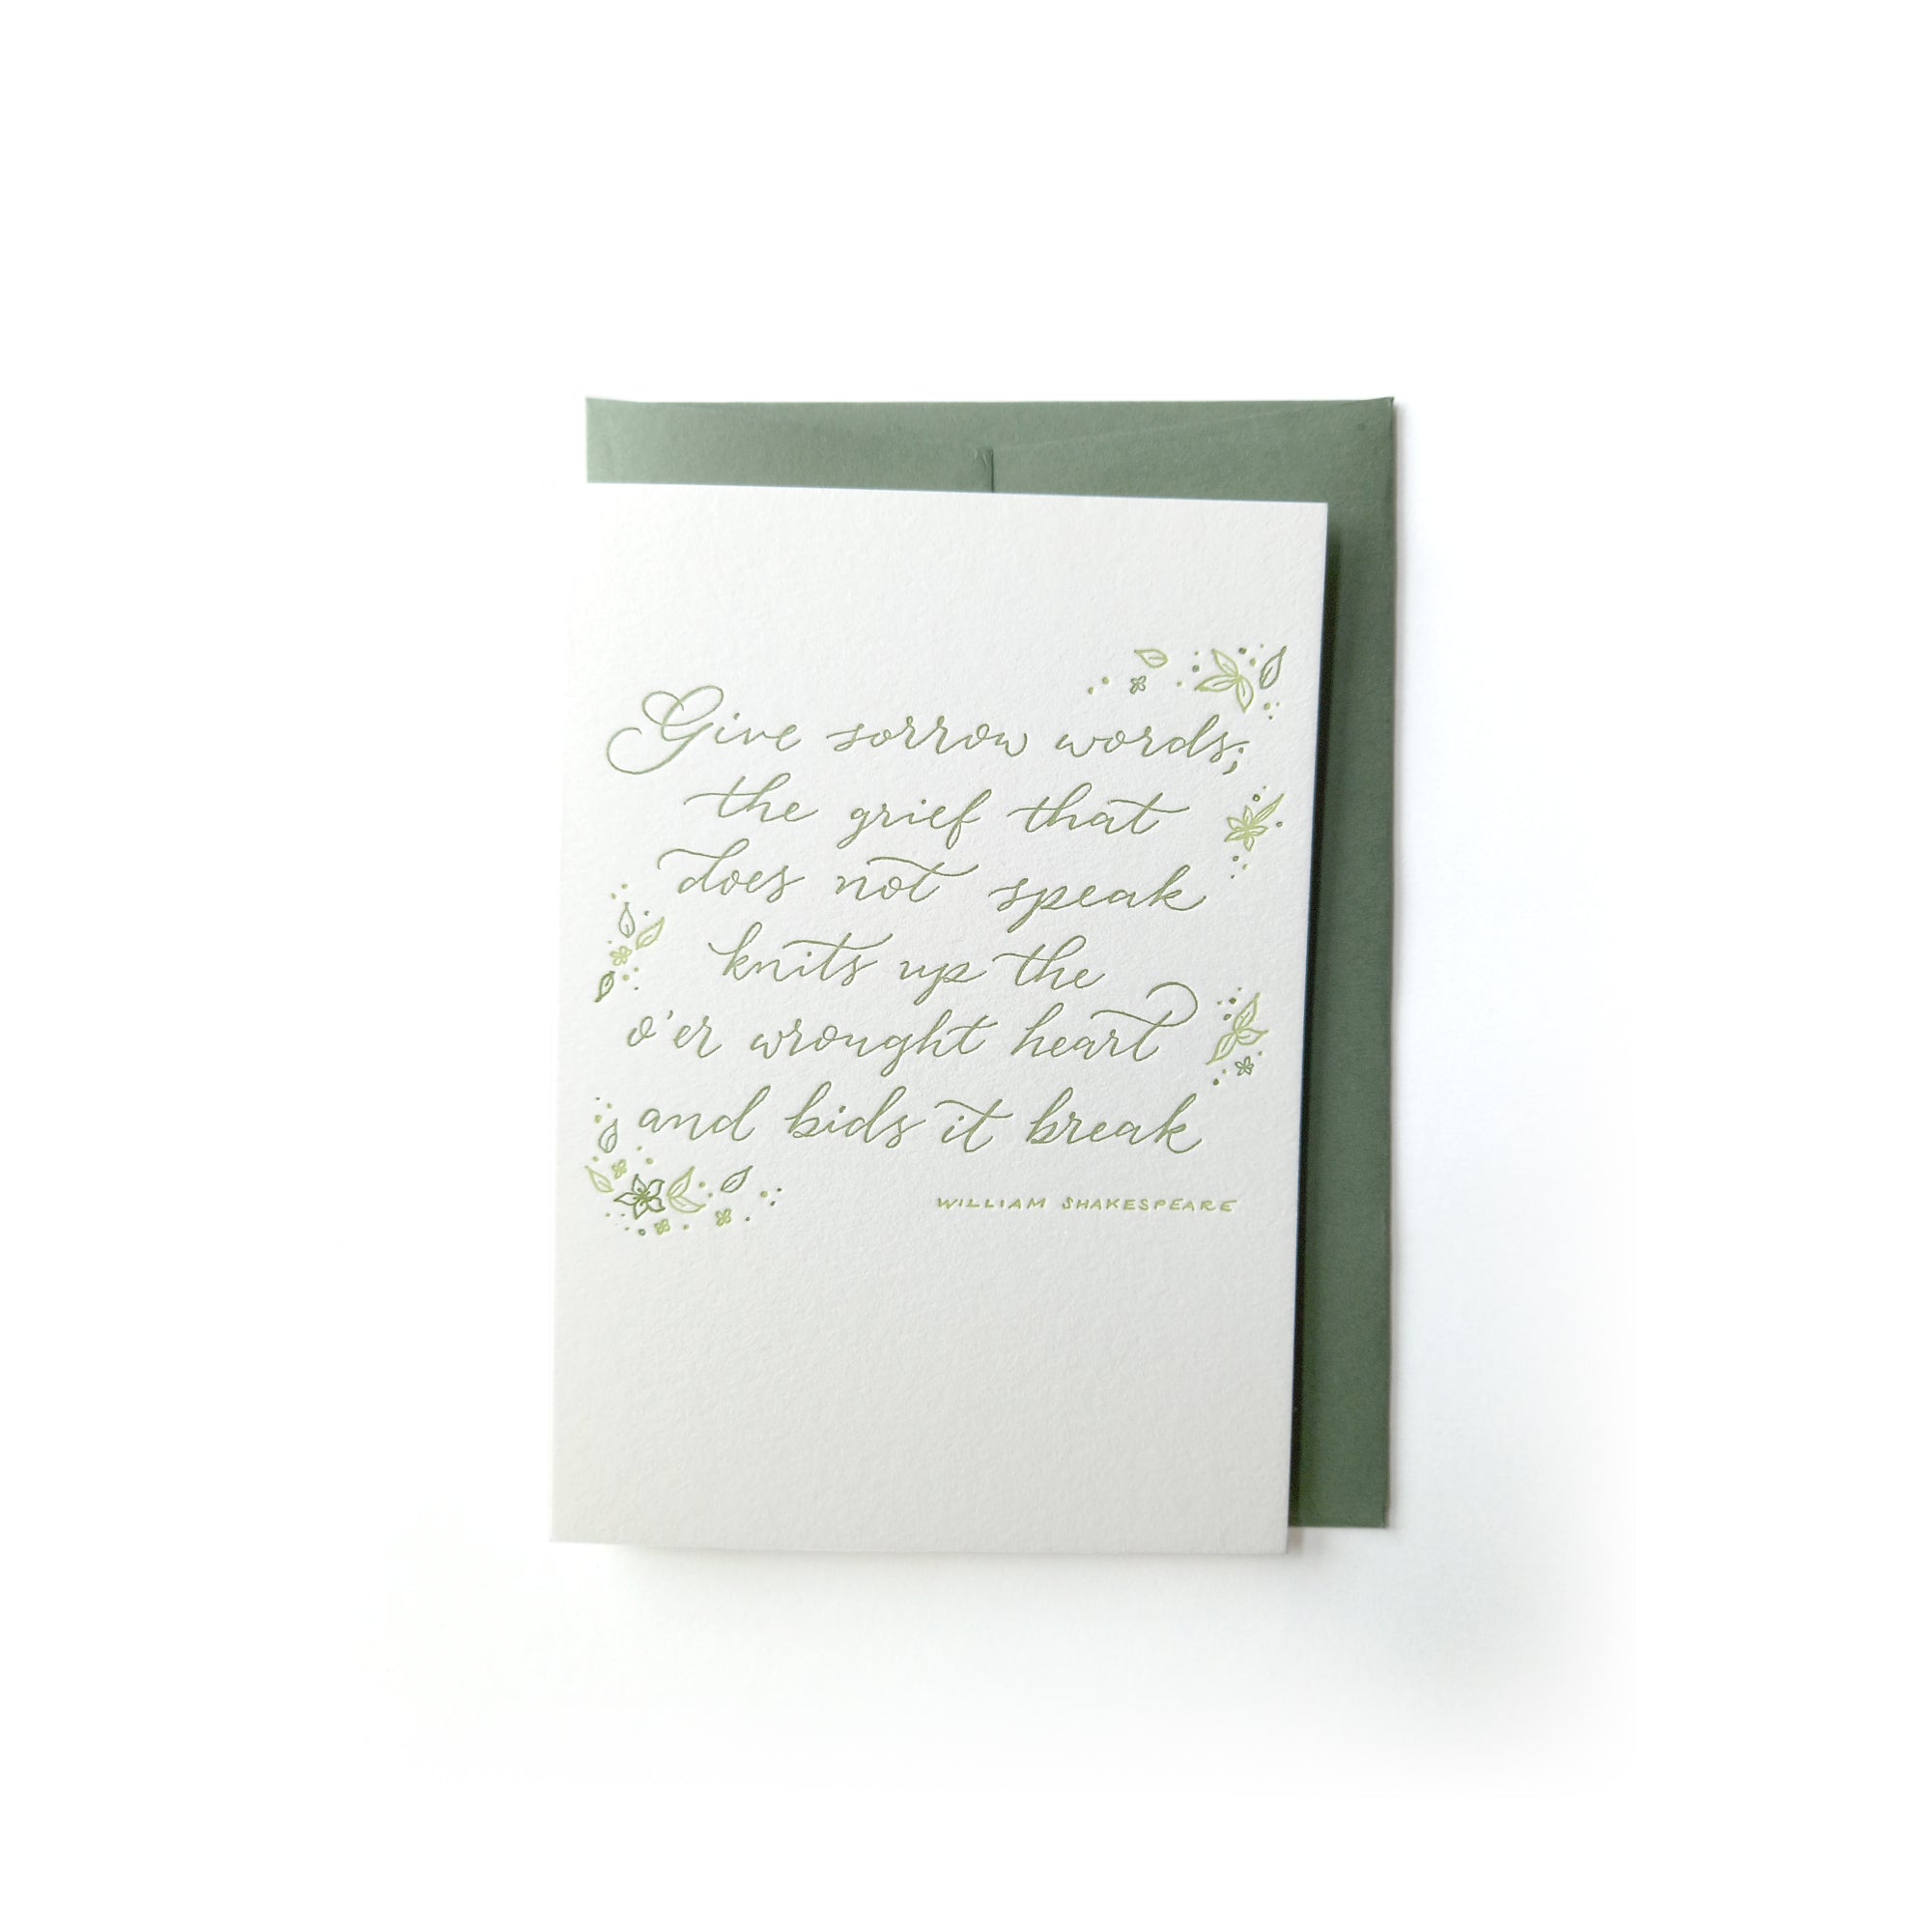 Give sorrow words;
the grief that
does not speak
knits up the
o'er wrought heart
and bids it break
WILLIAM SHAKESPEARE